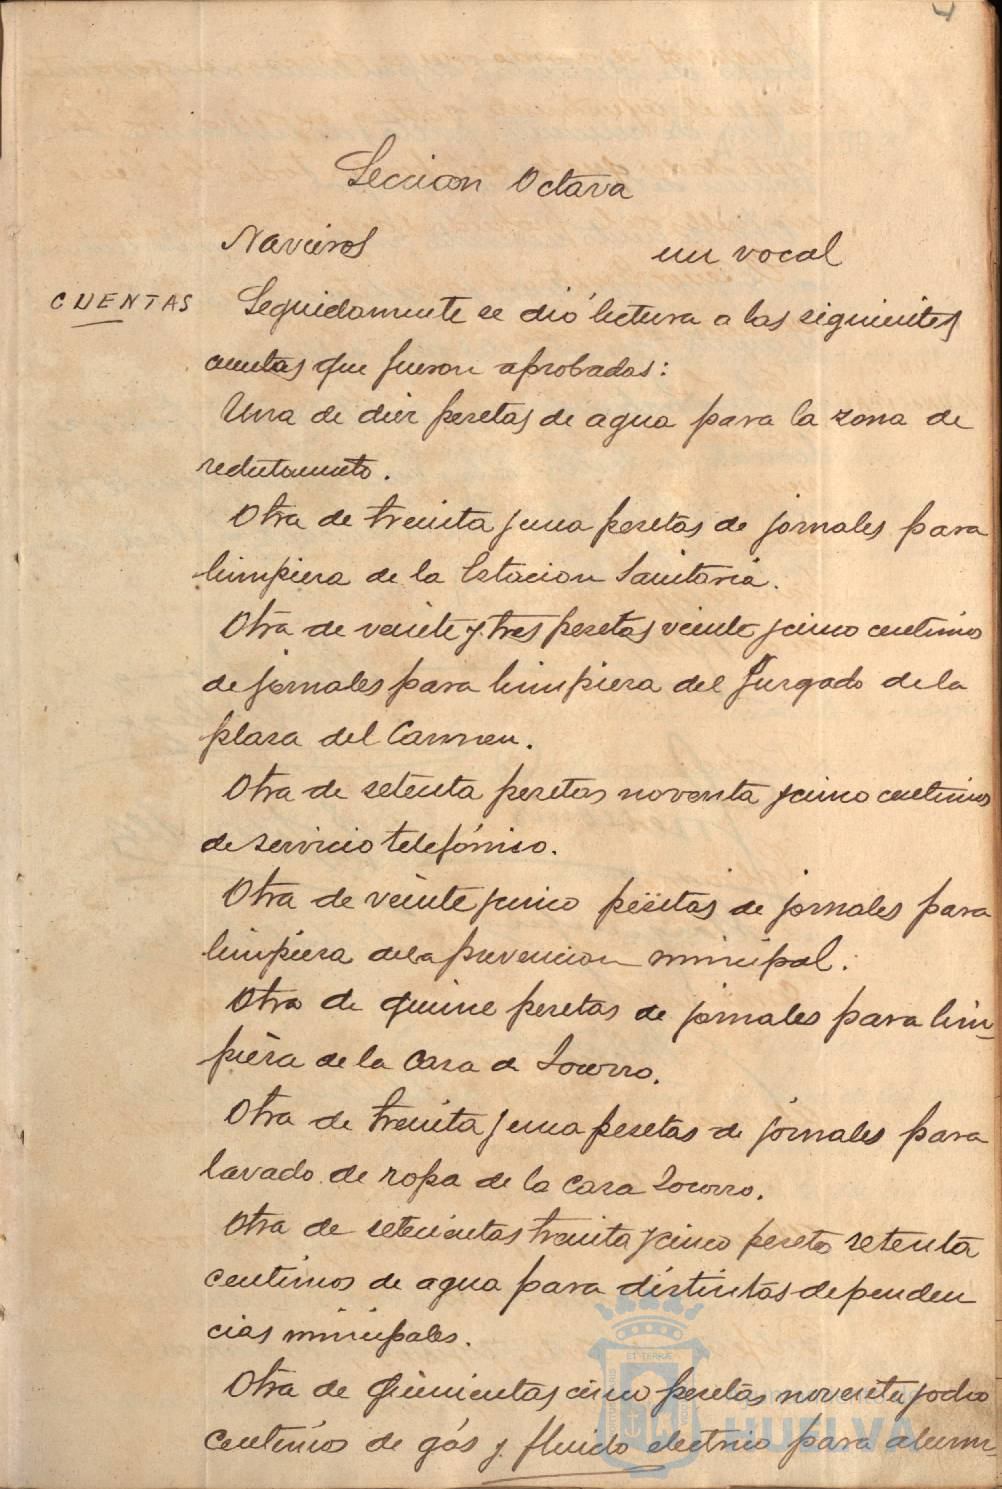 4
Seccion Octava
Navieros un vocal
CUENTAS
Seguidamente se dió lectura a las siguientes
cuentas que fueron aprobadas:
Una de diez pesetas de agua para la zona de
reclutamiento.
Otra de treinta y una pesetas de jornales para
limpieza de la Estacion Sanitaria.
Otra de veinte y tres pesetas veinte y cinco centimos
de jornales para limpieza del Juzgado de la
plaza del Carmen.
Otra de setenta pesetas noventa y cinco centimos
de servicio telefónico.
Otra de veinte y cinco pesetas de jornales para
limpieza de la prevencion municipal.
Otra de quince pesetas de jornales para lim-
pieza de la Casa de Socorro.
Otra de treinta y una pesetas de jornales para
lavado de ropa de la Casa Socorro.
Otra de setecientas treinta y cinco pesetas setenta
centimos de agua para distintas dependen
cias municipales.
Otra de quinientas cinco pesetas noventa y ocho
centimos de gás y fluido electrico para alum-
HUELVA